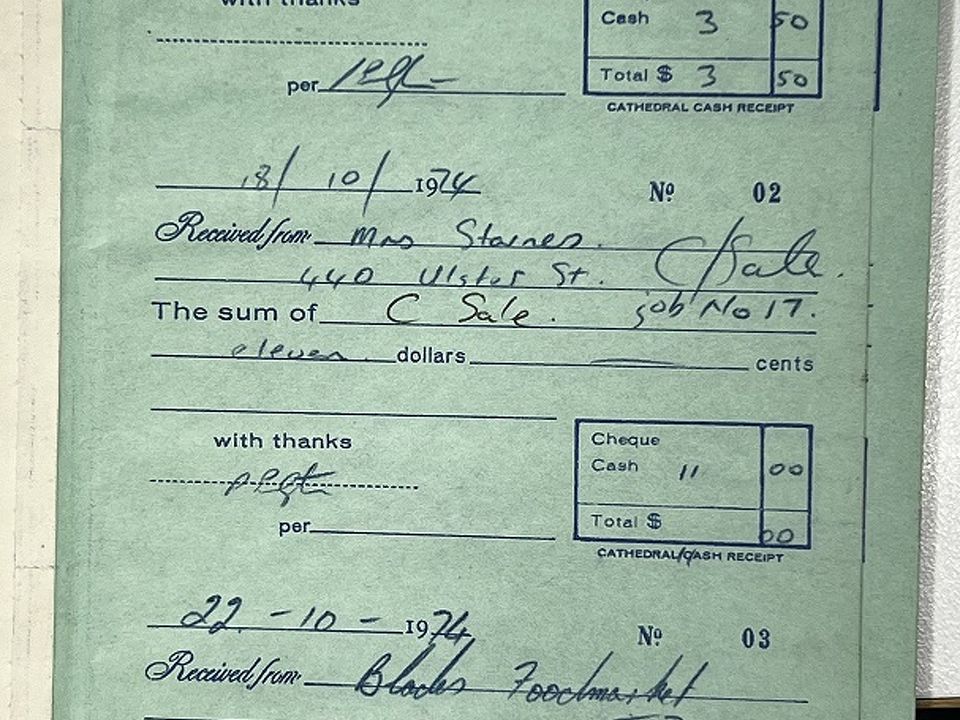 with thanks
Cash 3 50
per
Total $ 3 50
CATHEDRAL CASH RECEIPT
18/ 10/ 1974
Nº 02
Received from Mrs Starnes. C/Sale.
440 Ulster St.
The sum of C Sale. job No 17.
eleven dollars — cents
with thanks
Cheque
Cash 11 00
per
Total $ 00
CATHEDRAL CASH RECEIPT
22 - 10 - 1974
Nº 03
Received from Blacks Foodmarket